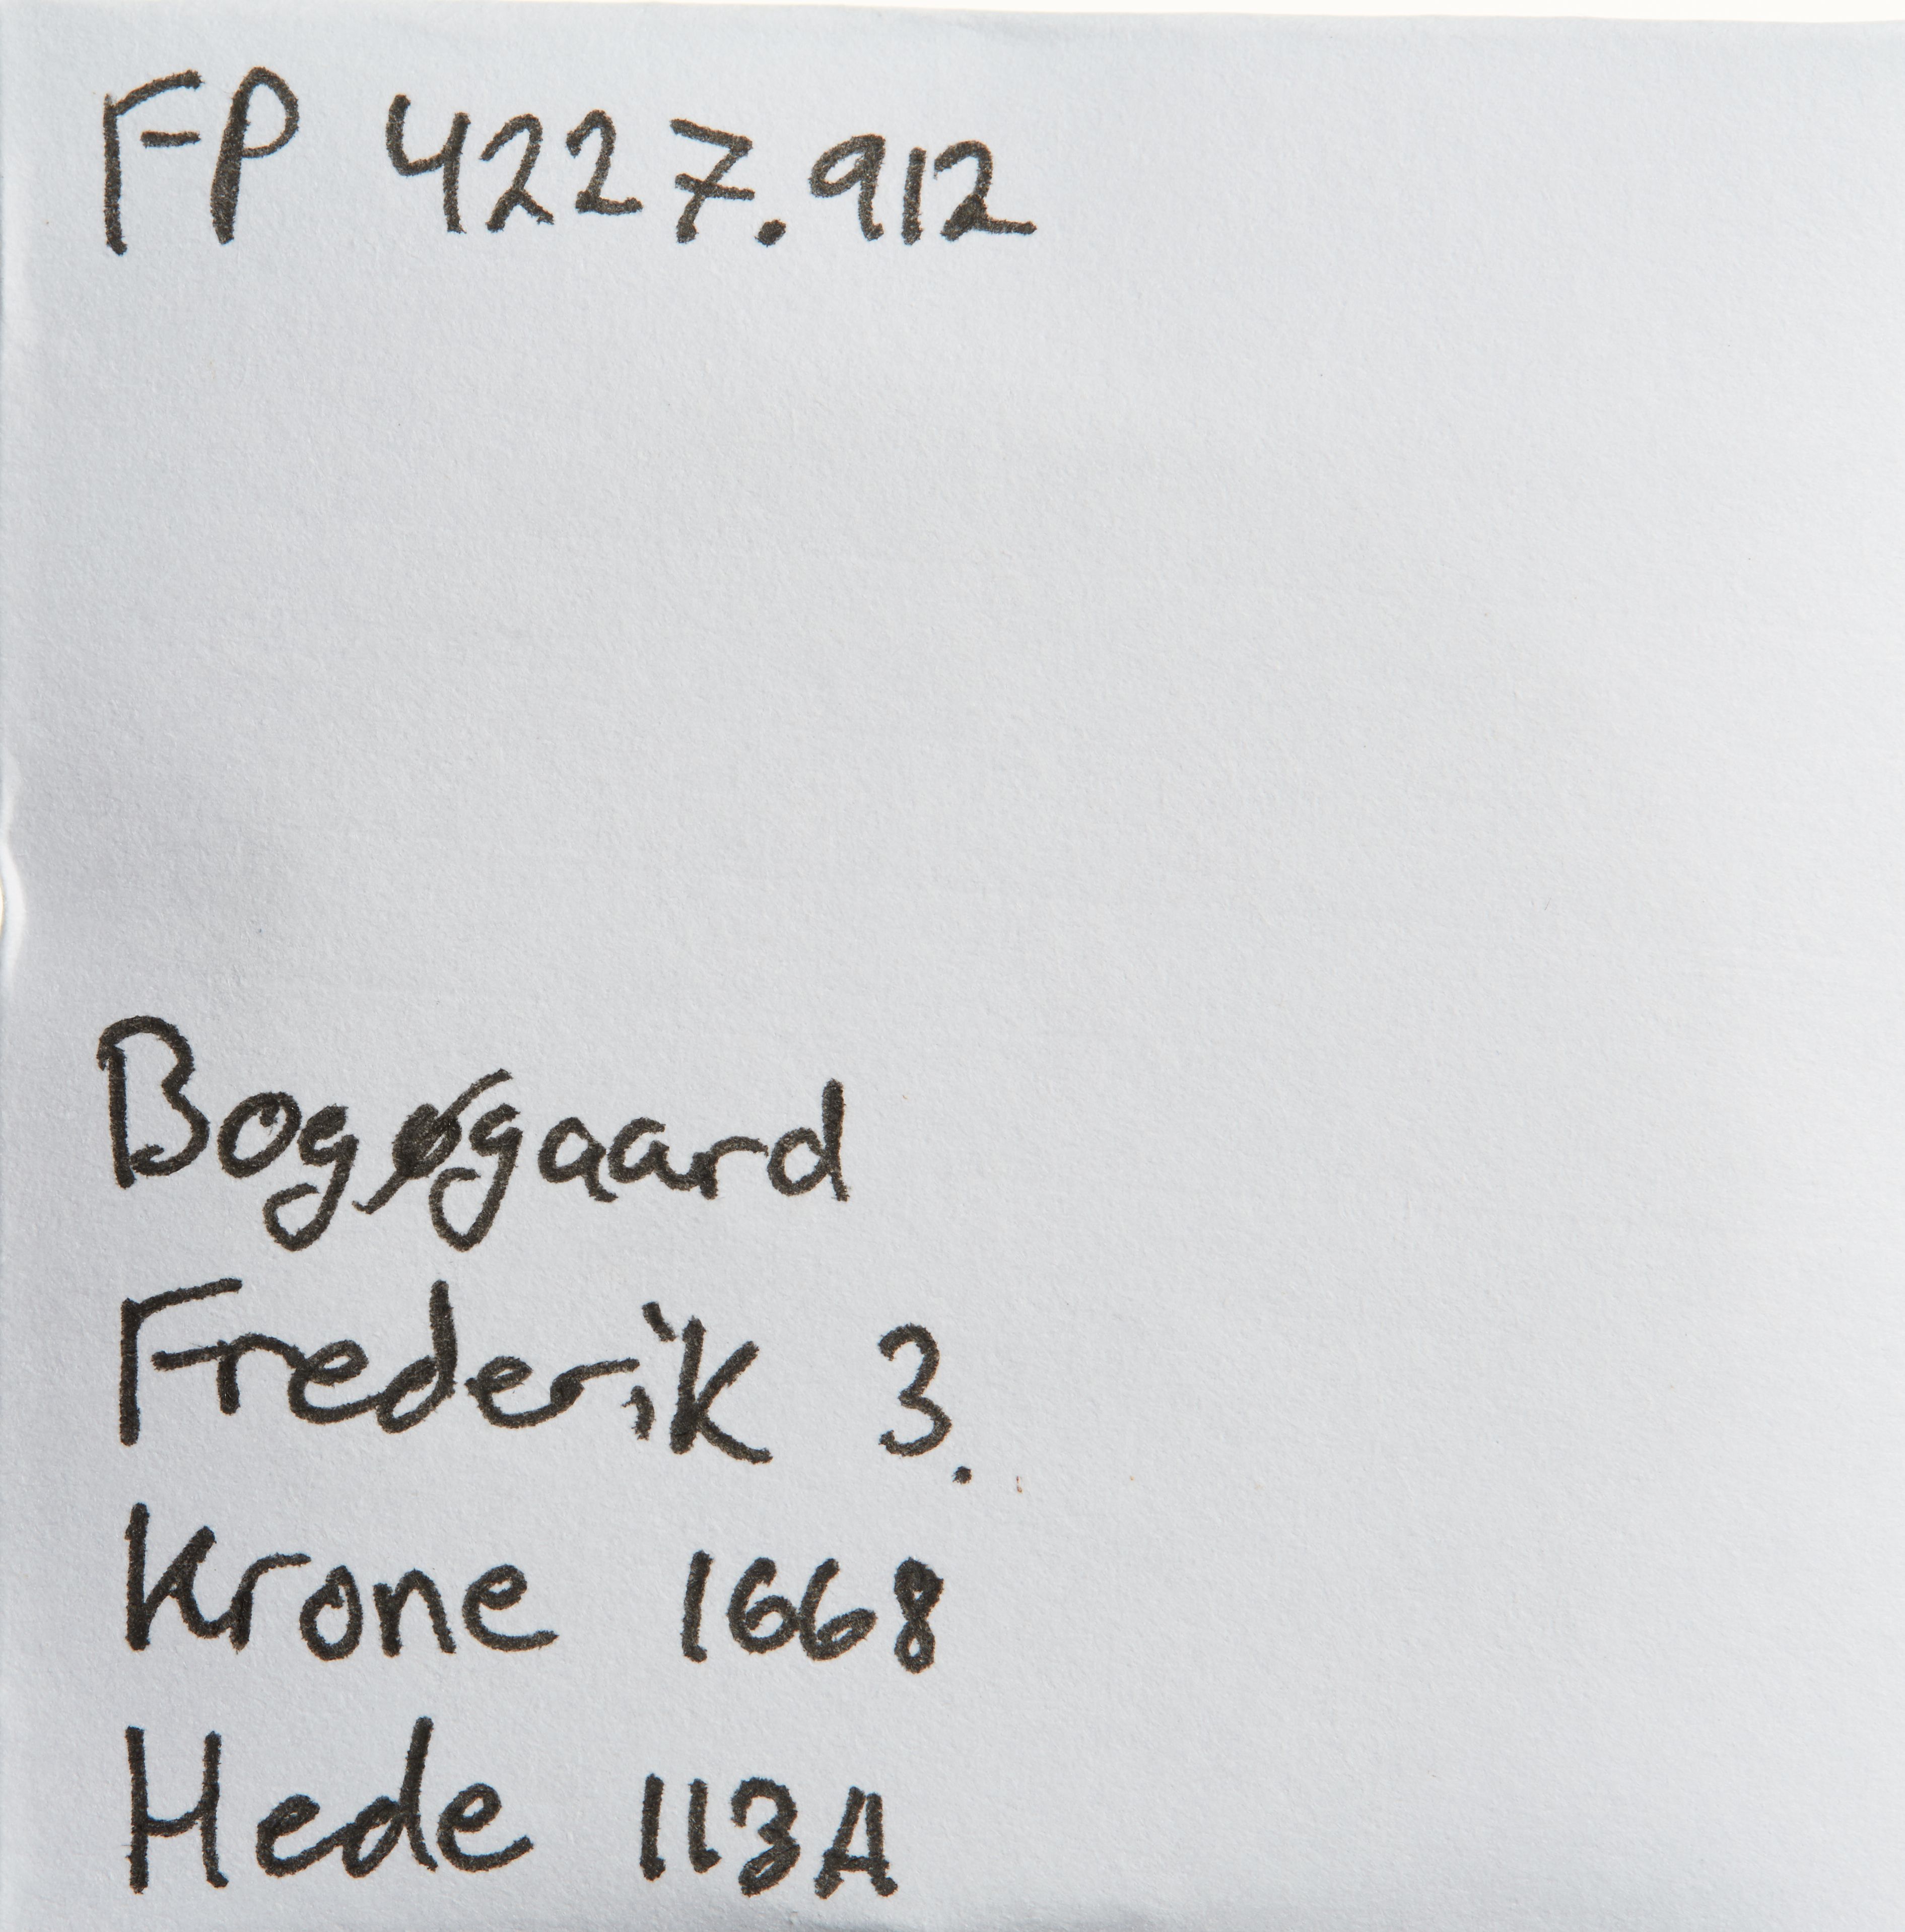 FP 4227.912
Bogøgaard
Frederik 3.
Krone 1668
Hede 113A